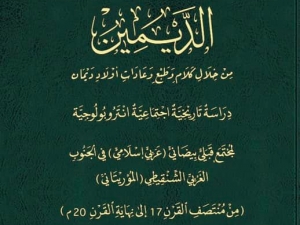 الدَّيْمِين
مِنْ خِلَالِ كَلَامِ وَطَبْعِ وَعَادَاتِ أَوْلَادِ دَيْمَان
دِرَاسَةٌ تَارِيخِيَّةٌ اجْتِمَاعِيَّةٌ انْتَرُوبُولُوجِيَّة
لِمُجْتَمَعٍ قَبَلِيٍّ بَيْضَانِيٍّ (عَرَبِيٍّ إِسْلَامِيٍّ) فِي الْجَنُوبِ
الْغَرْبِيِّ الشَّنْقِيطِيِّ (الْمُورِيتَانِيِّ)
(مِنْ مُنْتَصَفِ الْقَرْنِ 17 إِلَى نِهَايَةِ الْقَرْنِ 20 م)